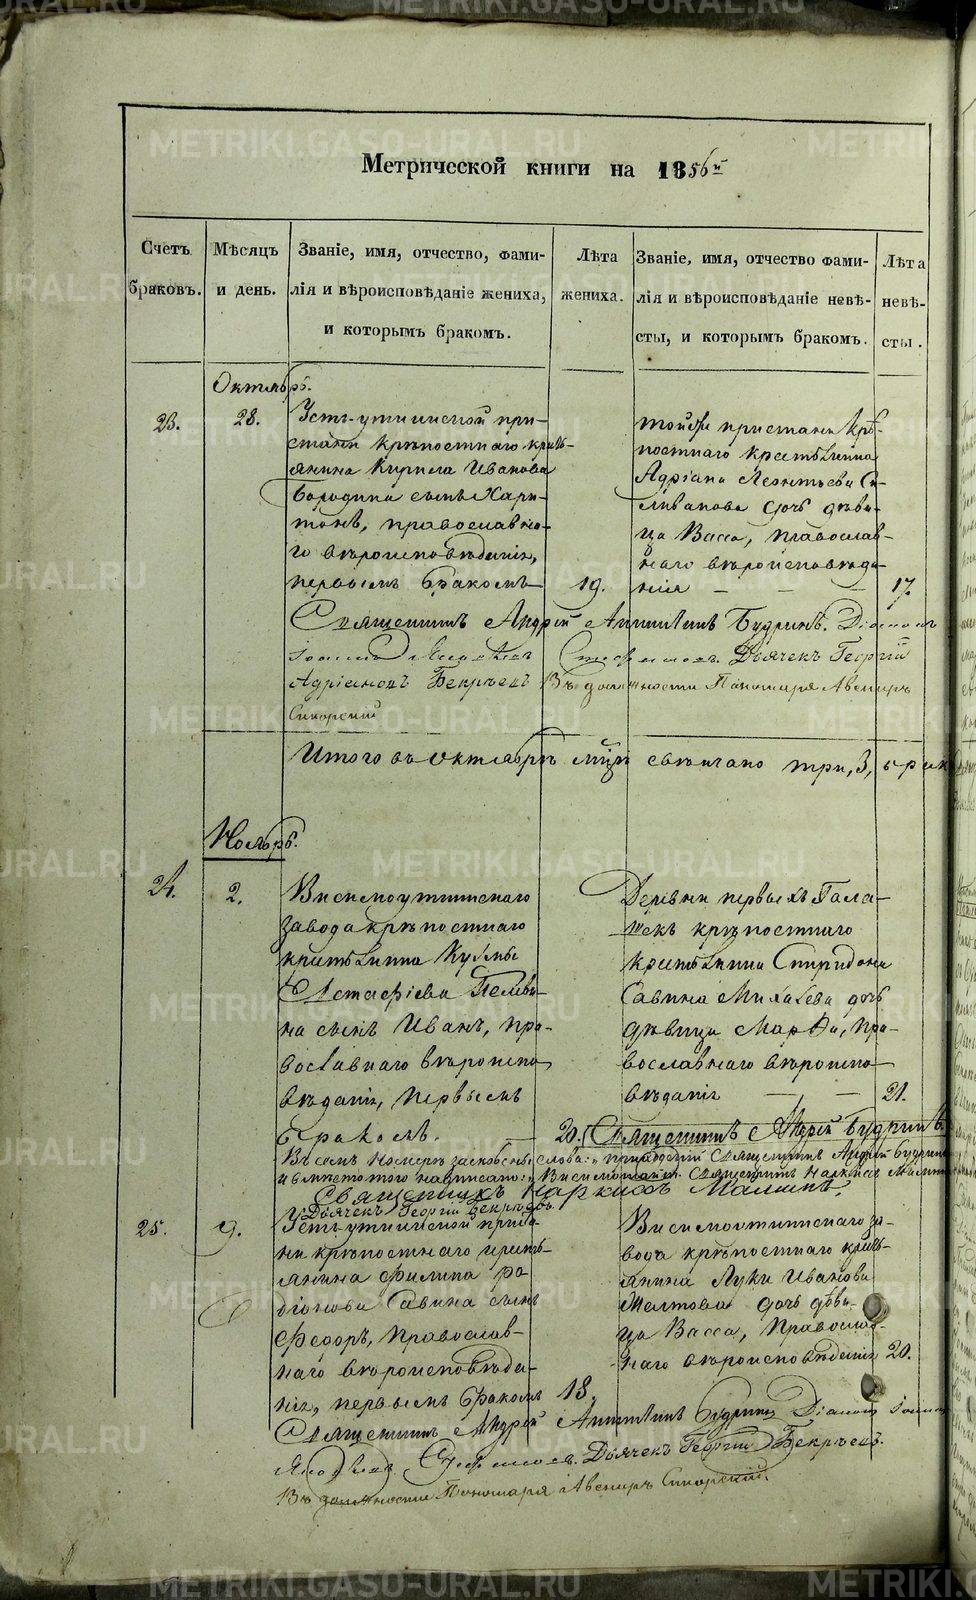 Метрической книги на 1856й
Счетъ браковъ.
Мѣсяцъ и день.
Званіе, имя, отчество, фами-
лія и вѣроисповѣданіе жениха,
и которымъ бракомъ.
Лѣта жениха.
Званіе, имя, отчество фами-
лія и вѣроисповѣданіе невѣ-
сты, и которымъ бракомъ.
Лѣта невѣ-
сты.
Октябрь.
23.
28.
Усть-уткинской при-
стани крѣпостнаго кресть-
янина Кирила Иванова
Бородина сынъ Хари-
тонъ, православна-
го вѣроисповѣданія,
первымъ бракомъ
19.
той же пристани крѣ-
постнаго крестьянина
Адріана Леонтьева Се-
ливанова дочь дѣви-
ца Васса, православ-
наго вѣроисповѣда-
нія — — —
17.
Священникъ Андрей Будринъ. Діаконъ
Іоаннъ Яковлевъ Стефановъ. Дьячекъ Георгій
Адріановъ Бекрѣевъ Въ должности Пономаря Авениръ
Сикорскій
Итого въ октябрѣ мцѣ свѣнчано три, 3, брак
Ноябрь.
24.
2.
Висимоуткинскаго
завода крѣпостнаго
крестьянина Кузьмы
Евстафіева Пелеви-
на сынъ Иванъ, пра-
вославнаго вѣроиспо-
вѣданія, первымъ
бракомъ. —
20.
Деревни первыхъ Гала-
шекъ крѣпостнаго
крестьянина Спиридона
Савина Михалева дочь
дѣвица Марѳа, пра-
вославнаго вѣроиспо-
вѣданія — —
21.
Священникъ Андрей Будринъ.
Въ семъ номерѣ заскоблены слова: Священникъ Андрей Будринъ
и вмѣсто того написано: Священникъ Наркисъ Малинъ
Священникъ Наркисъ Малинъ.
Дьячекъ Георгій Бекрѣевъ.
25.
9.
Усть-уткинской приста-
ни крѣпостнаго кресть-
янина Филипа Ро-
діонова Савина сынъ
Федоръ, Православ-
наго вѣроисповѣда-
нія, первымъ бракомъ
18.
Висимоуткинскаго за-
вода крѣпостнаго кресть-
янина Луки Иванова
Желтова дочь дѣви-
ца Васса, Православ-
наго вѣроисповѣданія
20.
Священникъ Андрей Будринъ Діаконъ Іоаннъ
Яковлевъ Стефановъ. Дьячекъ Георгій Бекрѣевъ.
Въ должности Пономаря Авениръ Сикорскій.
METRIKI.GASO-URAL.RU